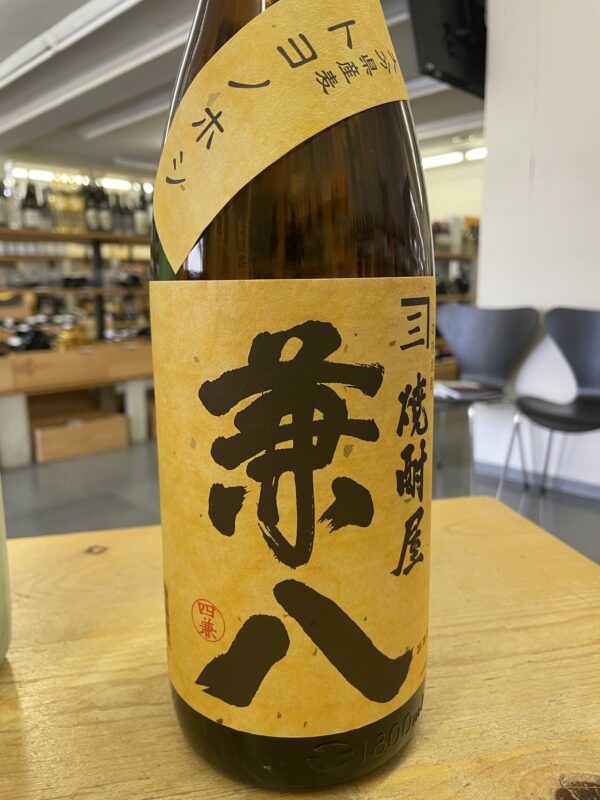 大分県産麦
トヨノホシ
三
焼酎屋
兼八
四兼
1800